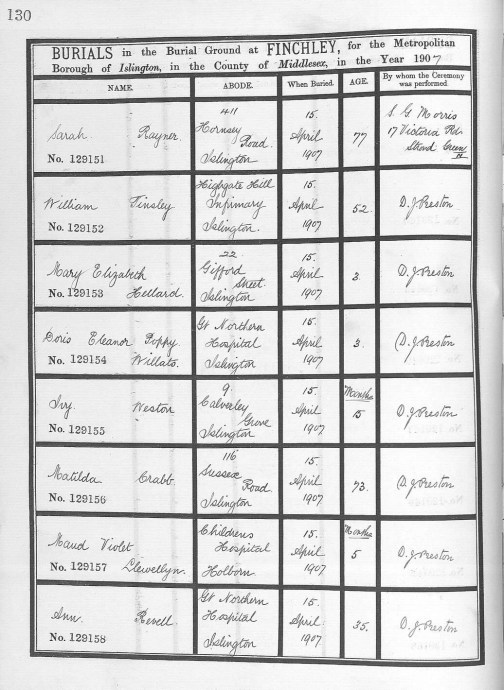 130
BURIALS in the Burial Ground at FINCHLEY, for the Metropolitan
Borough of Islington, in the County of Middlesex, in the Year 1907
NAME. ABODE. When Buried. AGE. By whom the Ceremony
was performed
Sarah Rayner
No. 129151
411
Hornsey
Road
Islington
15.
April
1907
77
S. G Morris
17 Victoria Rd.
Stroud Green
N
William Tinsley
No. 129152
Highgate Hill
Infirmary
Islington.
15.
April
1907
52.
D. J. Preston
Mary Elizabeth
No. 129153 Hellard.
22
Gifford
Street.
Islington
15.
April
1907
2.
D. J. Preston
Doris Eleanor Poppy
No. 129154 Willats.
Gt Northern
Hospital
Islington
15.
April
1907
3.
D. J. Preston
Ivy Weston
No. 129155
9
Calverley
Grove
Islington
15.
April
1907
Months
15
D. J. Preston
Matilda Crabb.
No. 129156
116
Sussex
Road
Islington
15.
April
1907
73.
D. J. Preston
Maud Violet
No. 129157 Llewellyn.
Childrens
Hospital
Holborn
15.
April
1907
Months
5
D. J. Preston
Ann Revell
No. 129158
Gt Northern
Hospital
Islington
15.
April
1907
35.
D. J. Preston